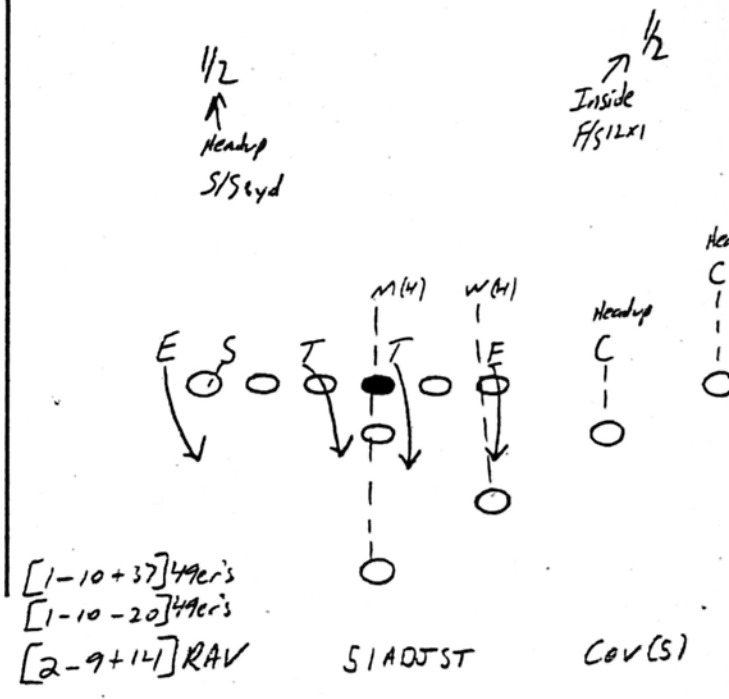 1/2
1/2
Headup
S/S8yd
Inside
F/S12x1
M(4)
W(4)
Headup
C
C
E
S
T
T
E
[1-10+37]49er's
[1-10-20]49er's
[2-9+14]RAV
51ADJST
Cov(5)